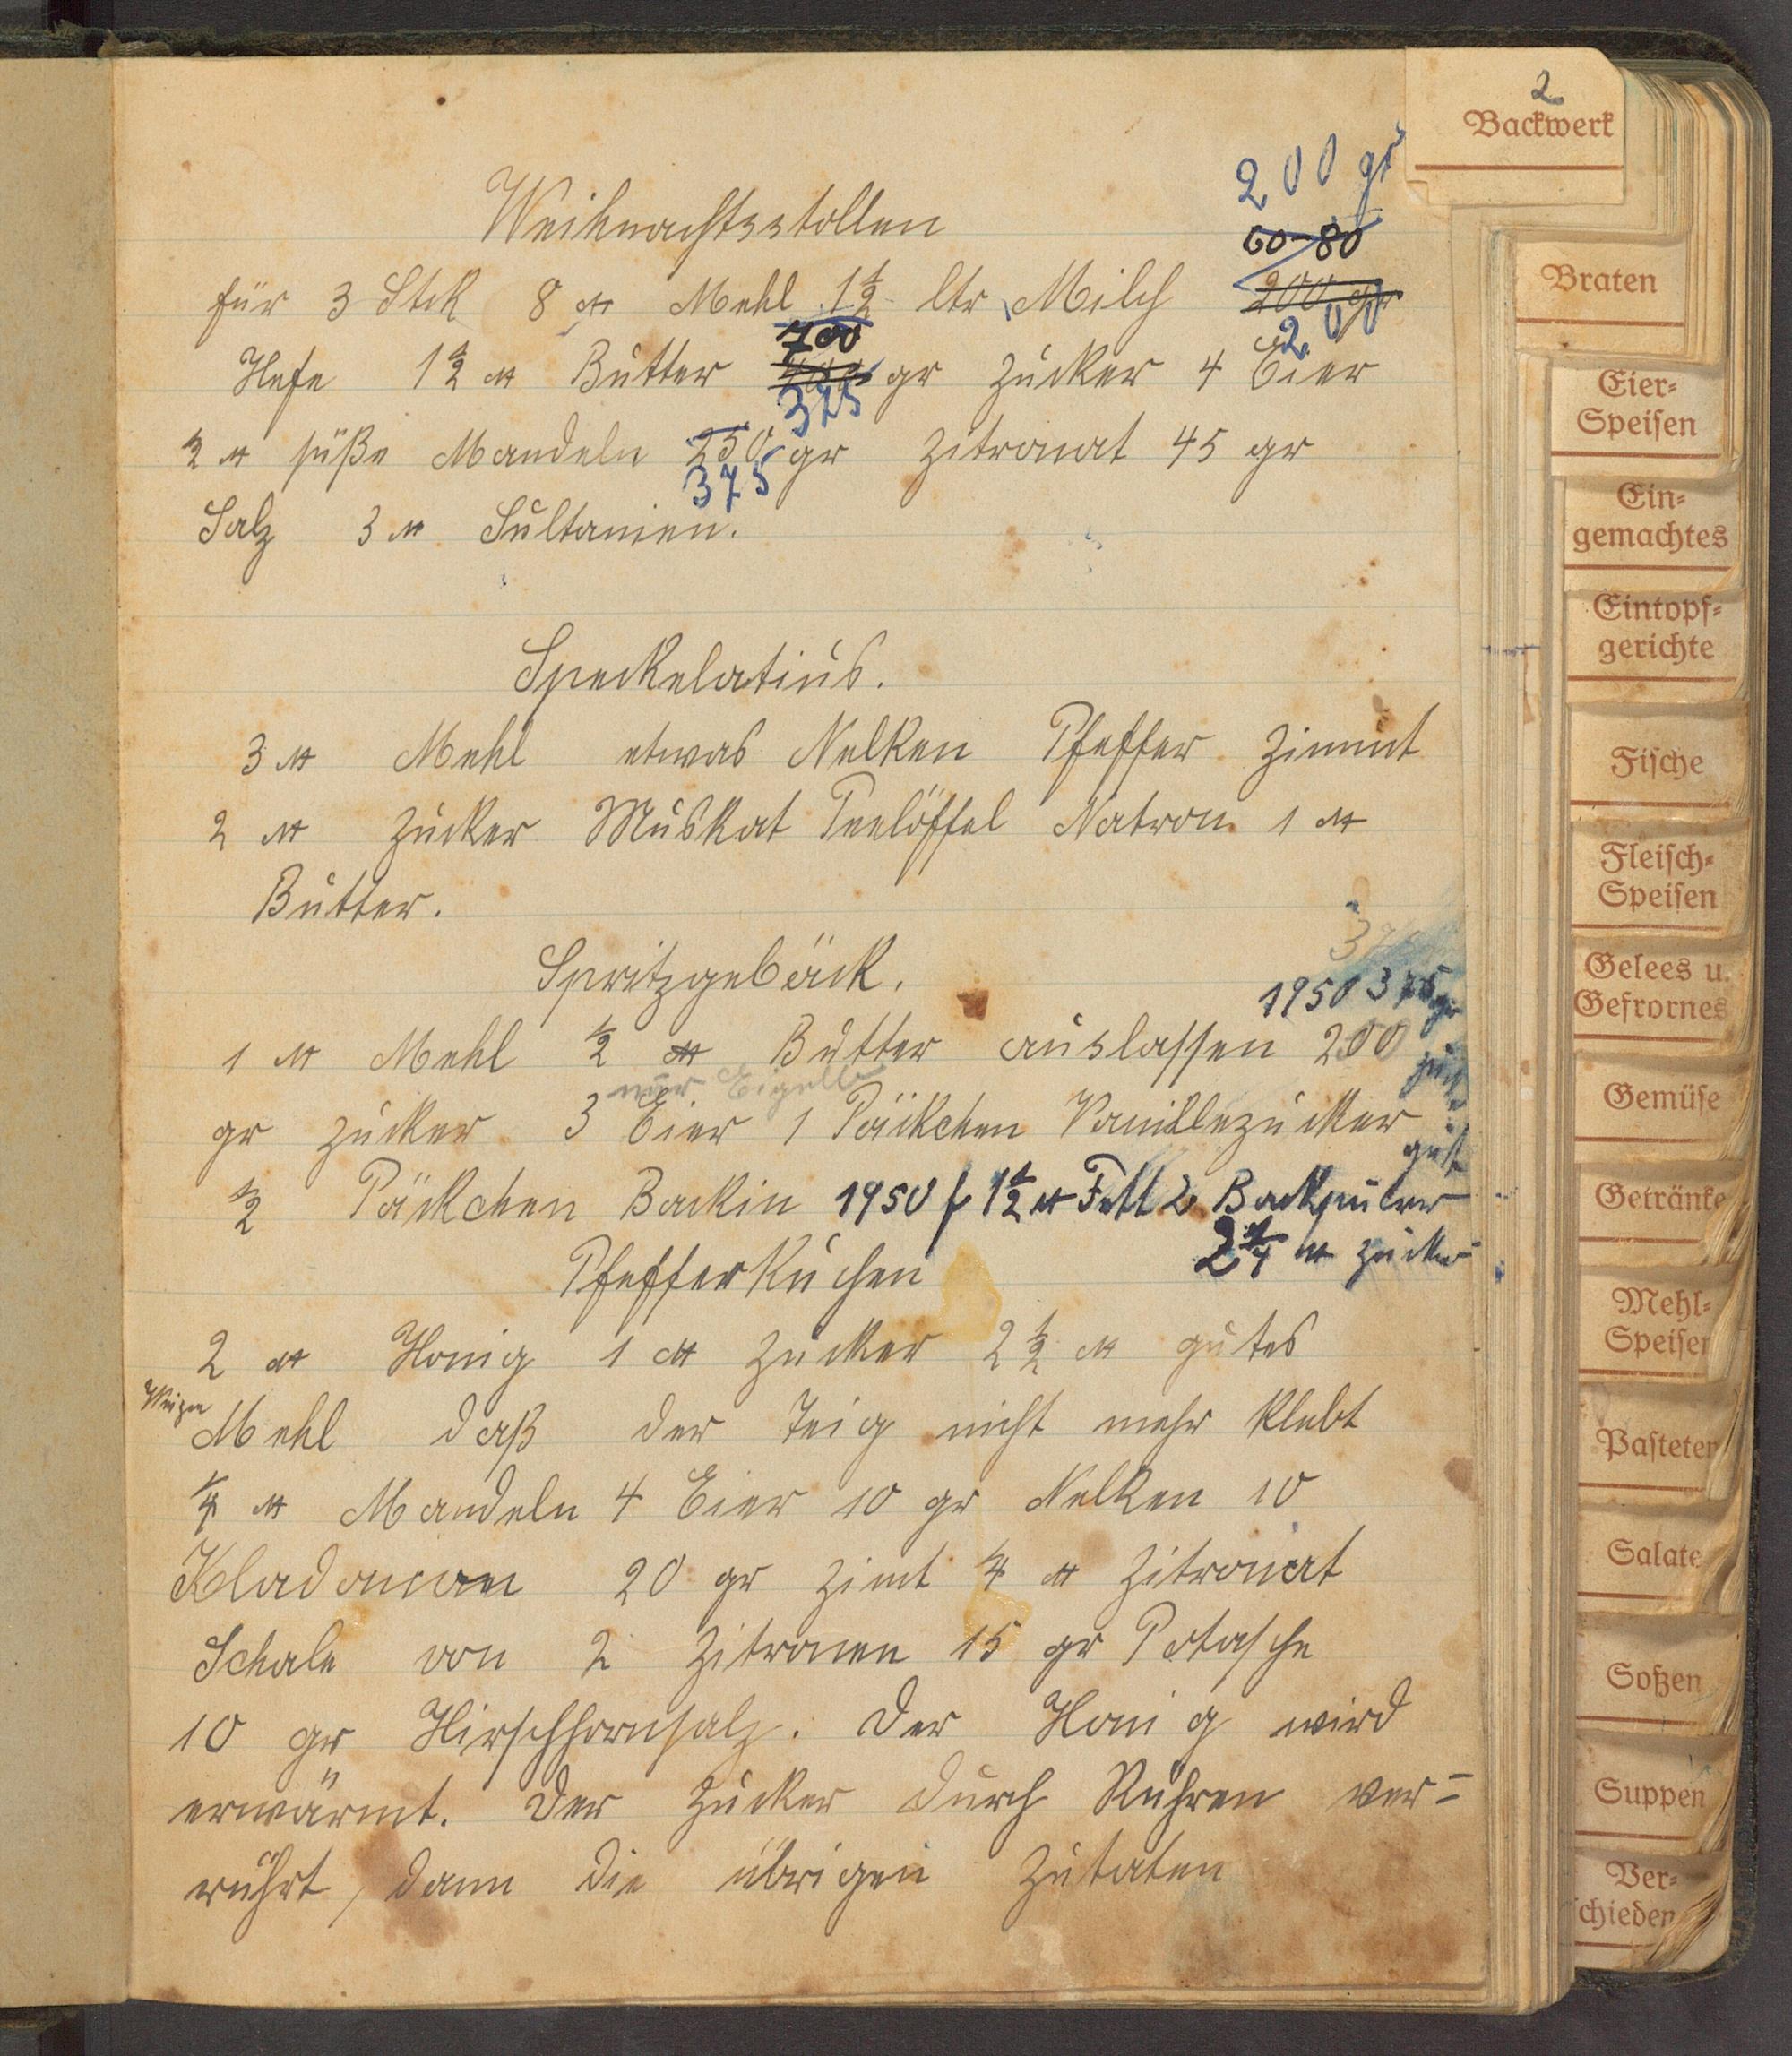 2
Backwerk
200 gr
Weihnachtsstollen
60-80
für 3 Stck 8 ℔ Mehl 1½ ltr Milch 200 gr
700
200
Hefe 1½ ℔ Butter gr Zucker 4 Eier
375
½ ℔ süße Mandeln 250 gr Zitronat 45 gr
375
Salz 3 ℔ Sultanien.
Speckelatius.
3 ℔ Mehl etwas Nelken Pfeffer Zimmt
2 ℔ Zucker Muskat Teelöffel Natron 1 ℔
Butter.
Spritzgebäck.
1950 375 gr
1 ℔ Mehl ½ ℔ Butter auslassen 200
nur Eigelb
gr Zucker 3 Eier 1 Päckchen Vanillezucker
gut
½ Päckchen Backin 1950 f 1½ ℔ Fett 2 Backpulver
2¼ ℔ Zucker
Pfefferkuchen
2 ℔ Honig 1 ℔ Zucker 2½ ℔ gutes
Weizen
Mehl daß der Teig nicht mehr klebt
¼ ℔ Mandeln 4 Eier 10 gr Nelken 10
Kladamom 20 gr Zimt ¼ ℔ Zitronat
Schale von 2 Zitronen 15 gr Potasche
10 gr Hirschhornsalz. Der Honig wird
erwärmt. Der Zucker durch Rühren ver-
rührt, dann die übrigen Zutaten
Braten
Eier-
Speisen
Ein-
gemachtes
Eintopf-
gerichte
Fische
Fleisch-
Speisen
Gelees u.
Gefrornes
Gemüse
Getränke
Mehl-
Speisen
Pasteten
Salate
Soßen
Suppen
Ver-
schieden